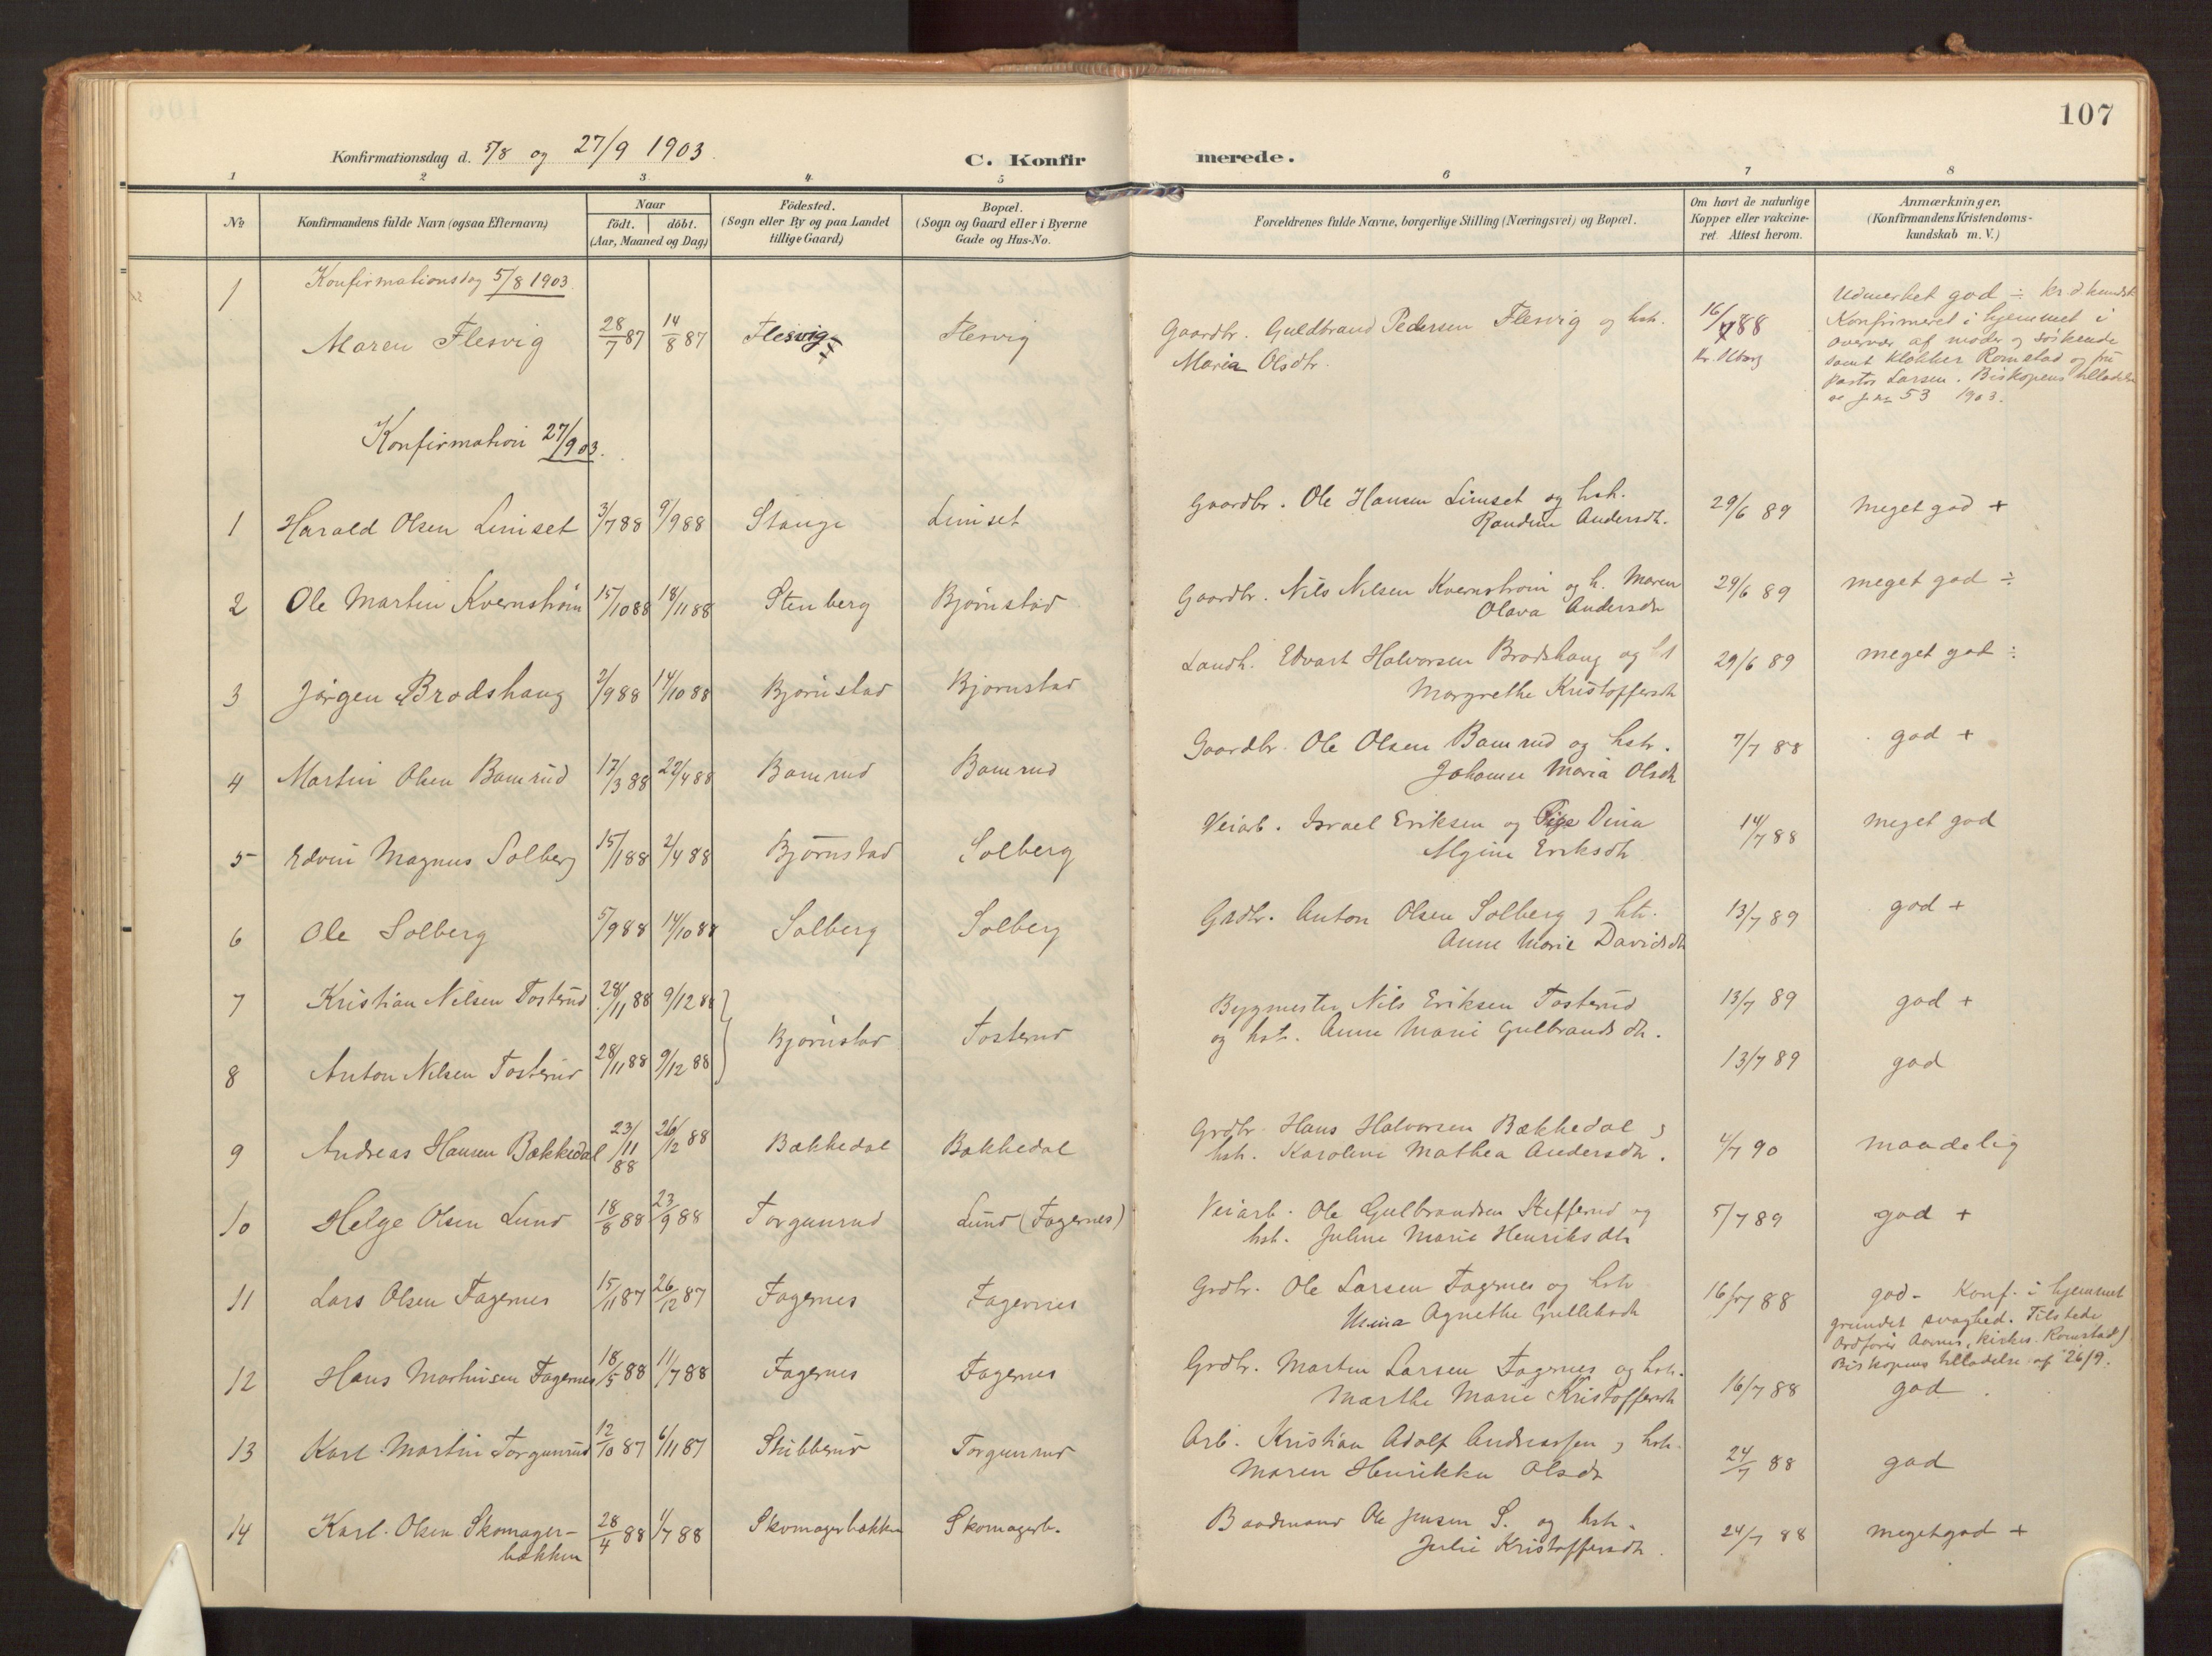 107
Konfirmationsdag d. 5/8 og 27/9 1903. C. Konfirmerede.
1 2 3 4 5 6 7 8
No
Konfirmandens fulde Navn (ogsaa Efternavn)
Naar
födt. döbt.
(Aar, Maaned og Dag)
Födested.
(Sogn eller By og paa Landet
tillige Gaard)
Bopæl.
(Sogn og Gaard eller i Byerne
Gade og Hus-No.
Forældrenes fulde Navne, borgerlige Stilling (Næringsvei) og Bopæl.
Om havt de naturlige
Kopper eller vakcine-
ret. Attest herom.
Anmærkninger.
(Konfirmandens Kristendoms-
kundskab m. V.)
Konfirmationsdag 5/8 1903
1 Maren Flesvig 28/7 87 14/8 87 Flesvig Flesvig Gaardbr. Guldbrand Pedersen Flesvig og hst. 16/7 88
Maria Olsdtr.
Udmerket god ÷ kr.d.kundsk
Konfirmeret i hjemmet i
overvær af moder og söskende
samt klokker Romstad og fru
pastor Larsen. Biskopens tilladelse
se j.nr 53 1903.
Konfirmation 27/9 03.
1 Harald Olsen Limset 3/7 88 9/9 88 Stange Limset Gaardbr. Ole Hansen Limset og hst. 29/6 89 Meget god +
Randine Andersdt.
2 Ole Martin Kvernstrøm 15/10 88 18/11 88 Stenberg Bjørnstad Gaardbr. Nils Nilsen Kvernstrøm og h. Maren 29/6 89 meget god ÷
Olava Andersdtr
3 Jørgen Brodshaug 2/9 88 14/10 88 Bjørnstad Bjørnstad Landh. Edvart Halvorsen Brodshaug og hst 29/6 89 meget god ÷
Margrethe Kristoffersdt
4 Martin Olsen Bamrud 17/3 88 22/4 88 Bamrud Bamrud Gaardbr. Ole Olsen Bamrud og hstr. 7/7 88 god +
Johanne Maria Olsdt
5 Edvin Magnus Solberg 15/1 88 2/4 88 Bjørnstad Solberg Veiarb. Israel Eriksen og Pige Dina 14/7 88 meget god
Algine Eriksdt
6 Ole Solberg 5/9 88 14/10 88 Solberg Solberg Grdbr. Anton Olsen Solberg og hst. 13/7 89 god +
Anne Marie Davidsdt
7 Kristian Nilsen Tosterud 28/11 88 9/12 88 Bygmester Nils Eriksen Tosterud 13/7 89 god +
Bjørnstad Tosterud og hst. Anne Marie Gulbrandsdt.
8 Anton Nilsen Tosterud 28/11 88 9/12 88 13/7 89 god
9 Andreas Hansen Bækkedal 23/11 88 26/12 88 Bækkedal Bækkedal Grdbr. Hans Halvorsen Bækkedal og 4/7 90 maadelig
hst. Karoline Mathea Andersdt.
10 Helge Olsen Lund 18/8 88 23/9 88 Torgunrud Lund (Fagernes) Veiarb. Ole Gulbrandsen Stefferud og 5/7 89 god +
hst. Juline Marie Henriksdt
11 Lars Olsen Fagernes 15/11 87 26/12 87 Fagernes Fagernes Grdbr. Ole Larsen Fagernes og hstr 16/7 88
Agnethe
god - Konf. i hjemmet
grundet svaghed. Tilstede
Ordfører Romstad)
Biskopens tilladelse af 26/9.
12 Hans Martinsen Fagernes 18/5 88 11/7 88 Fagernes Fagernes Grdbr. Martin Larsen Fagernes og hst. 16/7 88 god
Marthe Marie Kristoffersdt
13 Karl Martin Torgunrud 12/10 87 6/11 87 Stubberud Torgunrud Arb. Kristian Adolf Andreassen og hst. 24/7 88 god
Maren Henrikke Olsdt
14 Karl Olsen Skomager- 28/4 88 1/7 88 Skomagerbækken Skomagerb. Baadmand Ole Jensen S. og hst. 24/7 88 meget god +
bækken Julie Kristoffersdt.